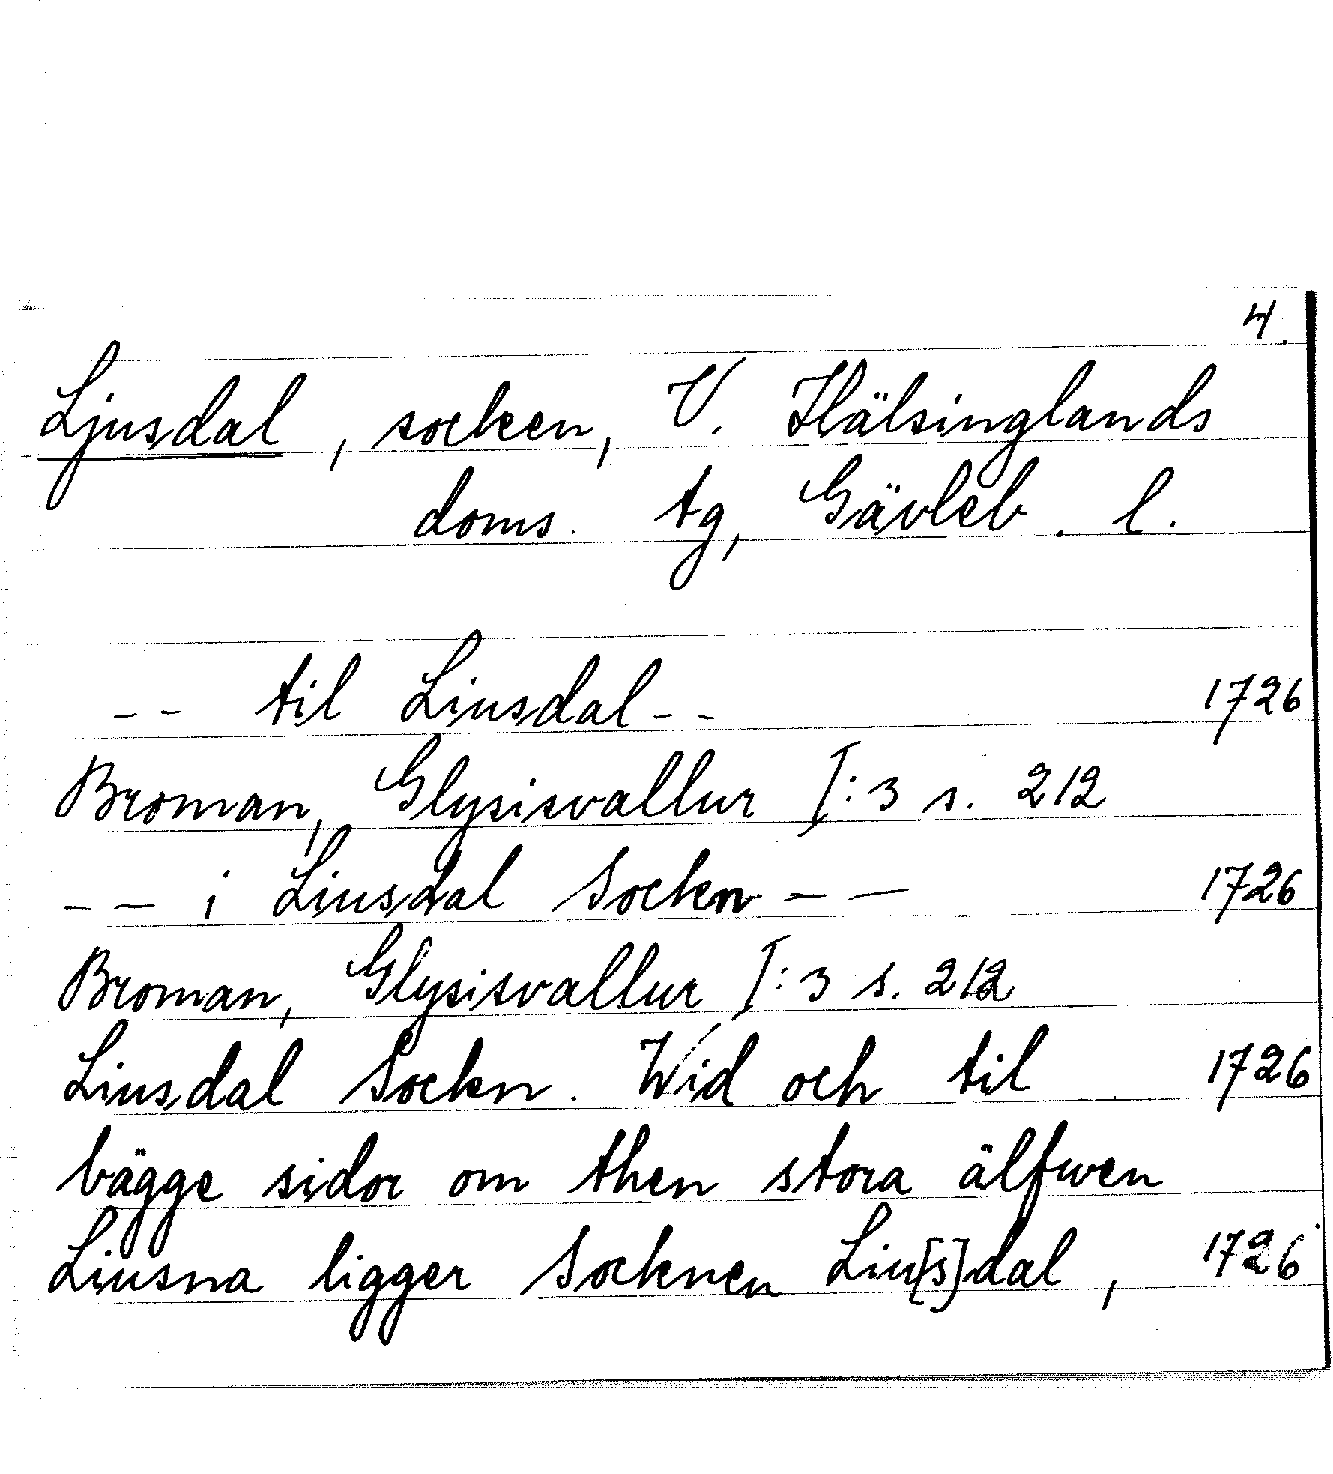 4.
Ljusdal, socken, V. Hälsinglands
doms. tg, Gävleb. l.
-- til Liusdal-- 1726
Broman, Glysisvallur I:3 s. 212
-- i Liusdal Sockn -- 1726
Broman, Glysisvallur I:3 s. 212
Liusdal Sockn. Wid och til 1726
bägge sidor om then stora älfwen
Liusna ligger Socknen Liu[s]dal, 1726